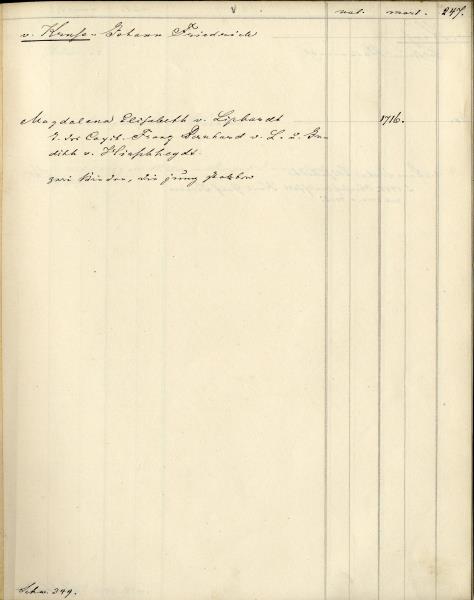 nat. mort. 247.
v. Kruse - Johann Friedrich
Magdalena Elisabeth v. Liphardt 1716.
T. des Capit. Franz Bernhard v. L. u. Ju-
dith v. Hirschheydt.
zwei Kinder, die jung starben
Schw. 299.